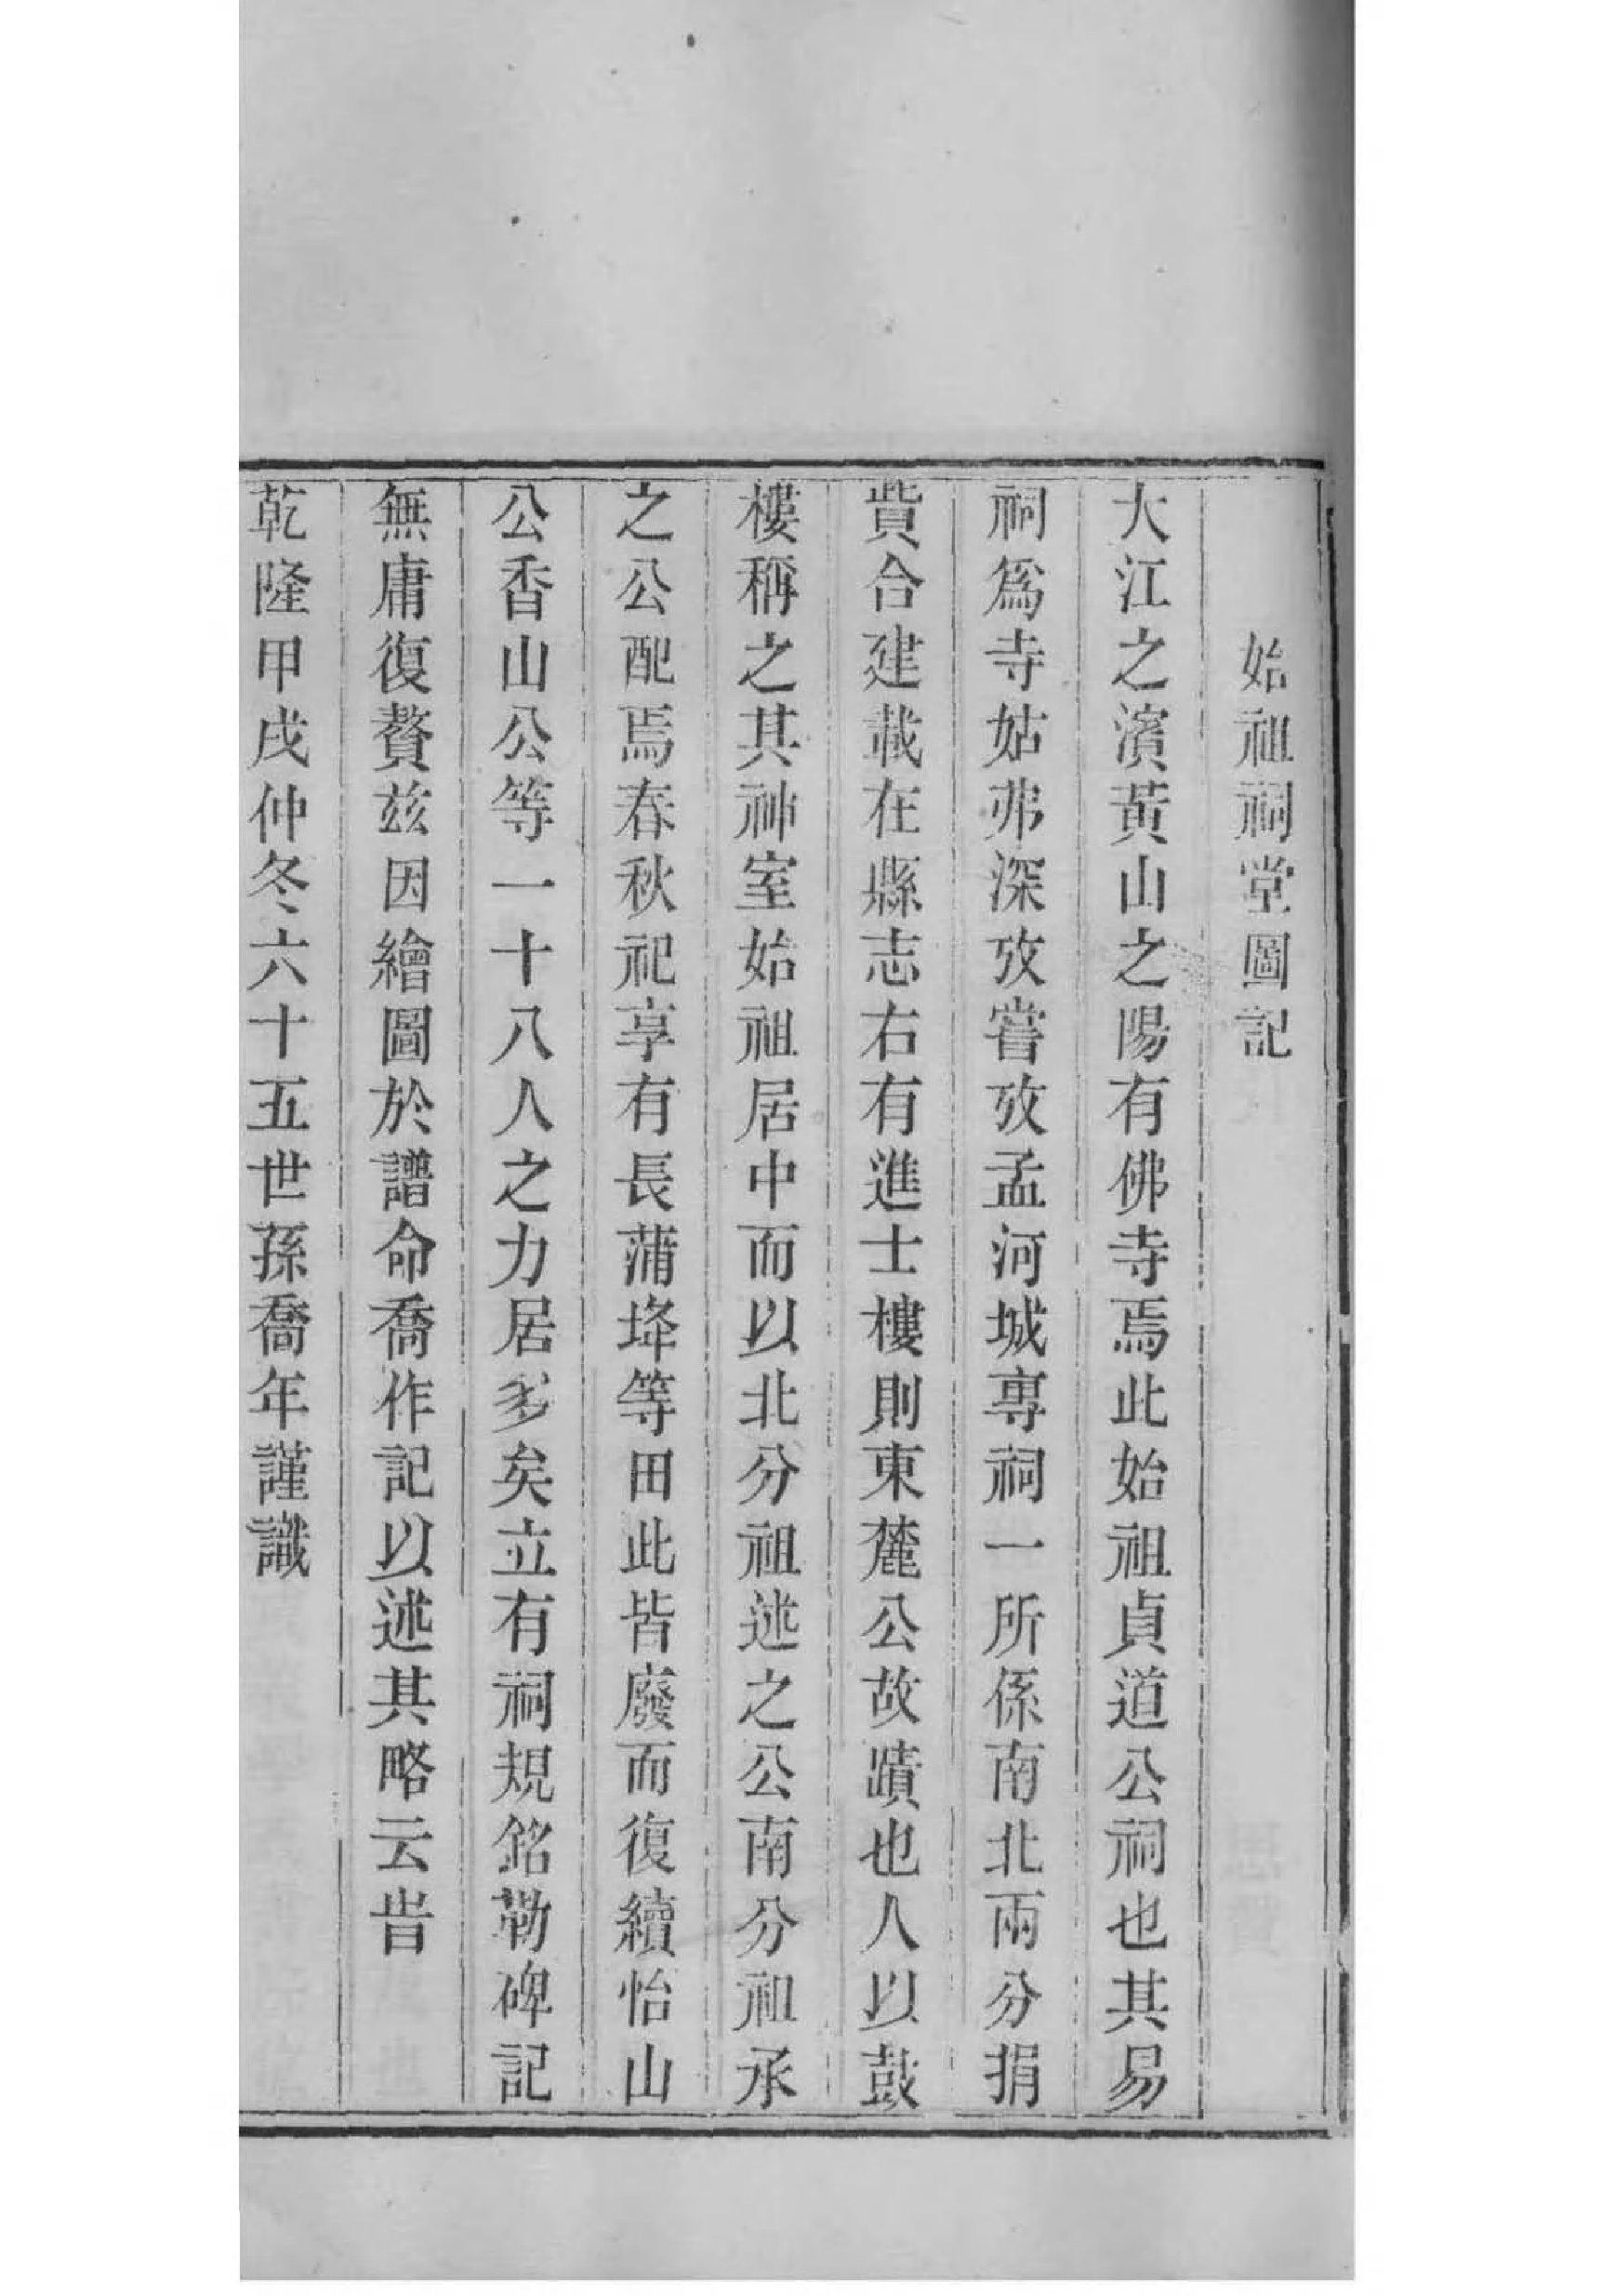 始祖祠堂圖記
大江之濱黃山之陽有佛寺焉此始祖貞道公祠也其易
祠爲寺姑弗深攷嘗攷孟河城專祠一所係南北兩分捐
貲合建載在縣志右有進士樓則東麓公故蹟也人以鼓
樓稱之其神室始祖居中而以北分祖述之公南分祖承
之公配焉春秋祀享有長蒲埄等田此皆廢而復續怡山
公香山公等一十八人之力居多矣立有祠規銘勒碑記
無庸復贅茲因繪圖於譜命喬作記以述其略云旹
乾隆甲戌仲冬六十五世孫喬年謹識